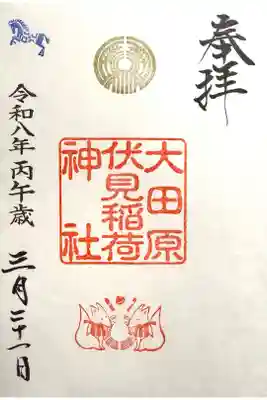 奉拝
大田原
伏見稲荷
神社
令和八年 丙午歳 三月三十一日